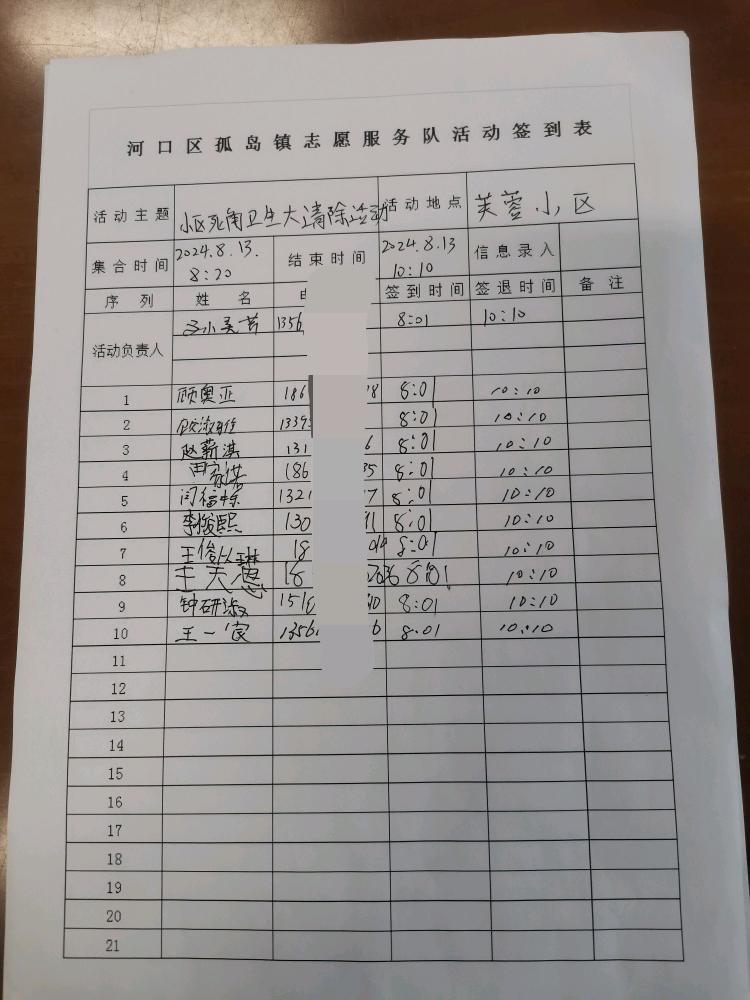 河口区孤岛镇志愿服务队活动签到表
活动主题 小区死角卫生大清除活动 活动地点 芙蓉小区
集合时间 2024.8.13. 8:20 结束时间 2024.8.13 10:10 信息录入
序列 姓名 签到时间 签退时间 备注
活动负责人 1356 8:01 10:10
1 顾奥亚 186 8:01 10:10
2 1339 8:01 10:10
3 赵薪淇 131 6 8:01 10:10
4 186 35 8:01 10:10
5 闫福栋 1321 7 8:01 10:10
6 李俊熙 130 8:01 10:10
7 王俊 18 8:01 10:10
8 王天愚 18 10:10
9 钟研淑 151 8:01 10:10
10 王一 1356 6 8:01 10:10
11
12
13
14
15
16
17
18
19
20
21